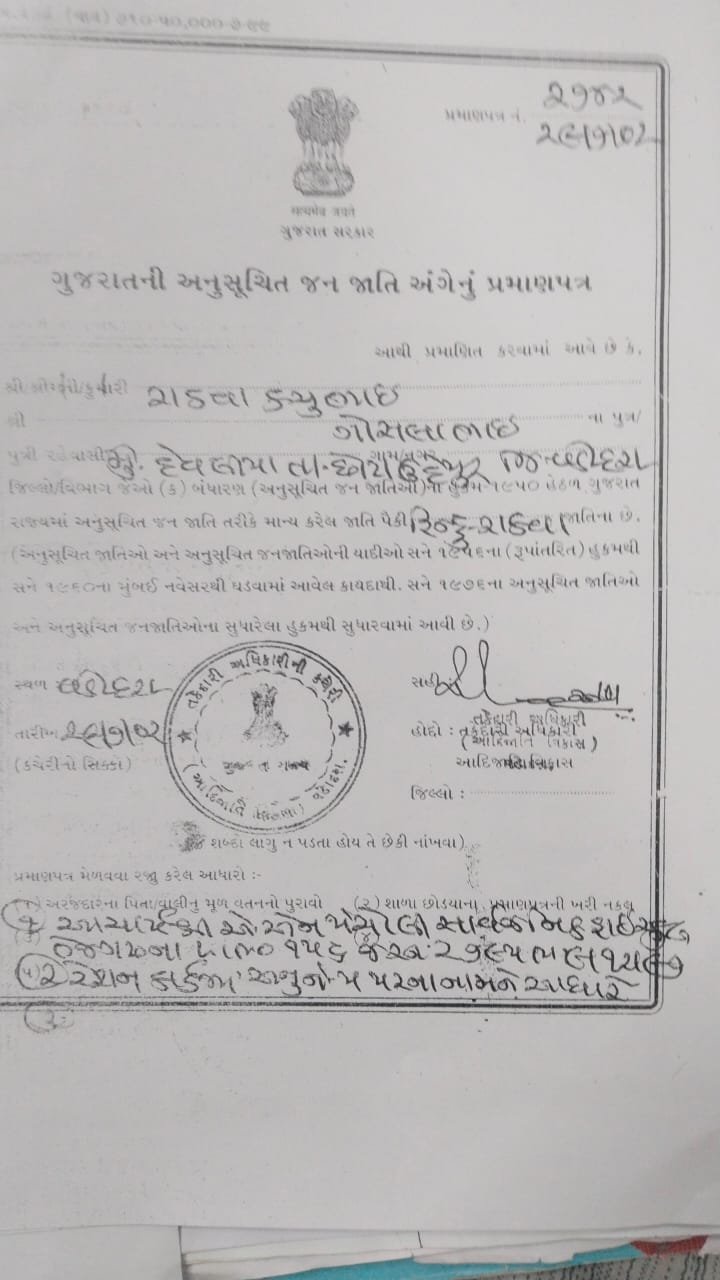 (પાન) ૭૧૦-૫૦,૦૦૦-૭-૯૯
પ્રમાણપત્ર નં. ૨૭૪૨
૨૯/૧/૦૨
सत्यमेव जयते
ગુજરાત સરકાર
ગુજરાતની અનુસૂચિત જન જાતિ અંગેનું પ્રમાણપત્ર
આથી પ્રમાણિત કરવામાં આવે છે કે,
શ્રી શ્રીમતી/કુમારી રાઠવા કચુભાઇ
શ્રી ગોસલાભાઇ ના પુત્ર/
પુત્રી રહેવાસી મુ. દેવલીયા ગામ/નગર તા. છોટાઉદેપુર જિ-વડોદરા
જિલ્લો/વિભાગ જેઓ (ક) બંધારણ (અનુસૂચિત જન જાતિઓ)ના હુકમ ૧૯૫૦ હેઠળ ગુજરાત
રાજ્યમાં અનુસૂચિત જન જાતિ તરીકે માન્ય કરેલ જાતિ પૈકી હિન્દુ-રાઠવા જાતિના છે.
(અનુસૂચિત જાતિઓ અને અનુસૂચિત જનજાતિઓની યાદીઓ સને ૧૯૫૬ના (રૂપાંતરિત) હુકમથી
સને ૧૯૬૦ના મુંબઈ નવેસરથી ઘડવામાં આવેલ કાયદાથી. સને ૧૯૭૬ના અનુસૂચિત જાતિઓ
અને અનુસૂચિત જનજાતિઓના સુધારેલા હુકમથી સુધારવામાં આવી છે.)
સ્થળ વડોદરા
તારીખ ૨૯/૧/૦૨
(કચેરીનો સિક્કો)
તકેદારી અધિકારીની કચેરી
(આદિજાતિ વિકાસ) વડોદરા.
સહી
તકેદારી અધિકારી
હોદ્દો : તકેદારી અધિકારી
(આદિજાતિ વિકાસ)
આદિજાતિ વિકાસ
જિલ્લો :
શબ્દો લાગુ ન પડતા હોય તે છેકી નાંખવા)
પ્રમાણપત્ર મેળવવા રજૂ કરેલ આધારો :-
(૧) અરજદારના પિતા/વાલીનું મૂળ વતનનો પુરાવો (૨) શાળા છોડયાના પ્રમાણપત્રની ખરી નકલ
૧ આચાર્ય સાર્વજનિક હાઇસ્કુલ
૨ રેશન કાર્ડમાં પરના નામને આધારે